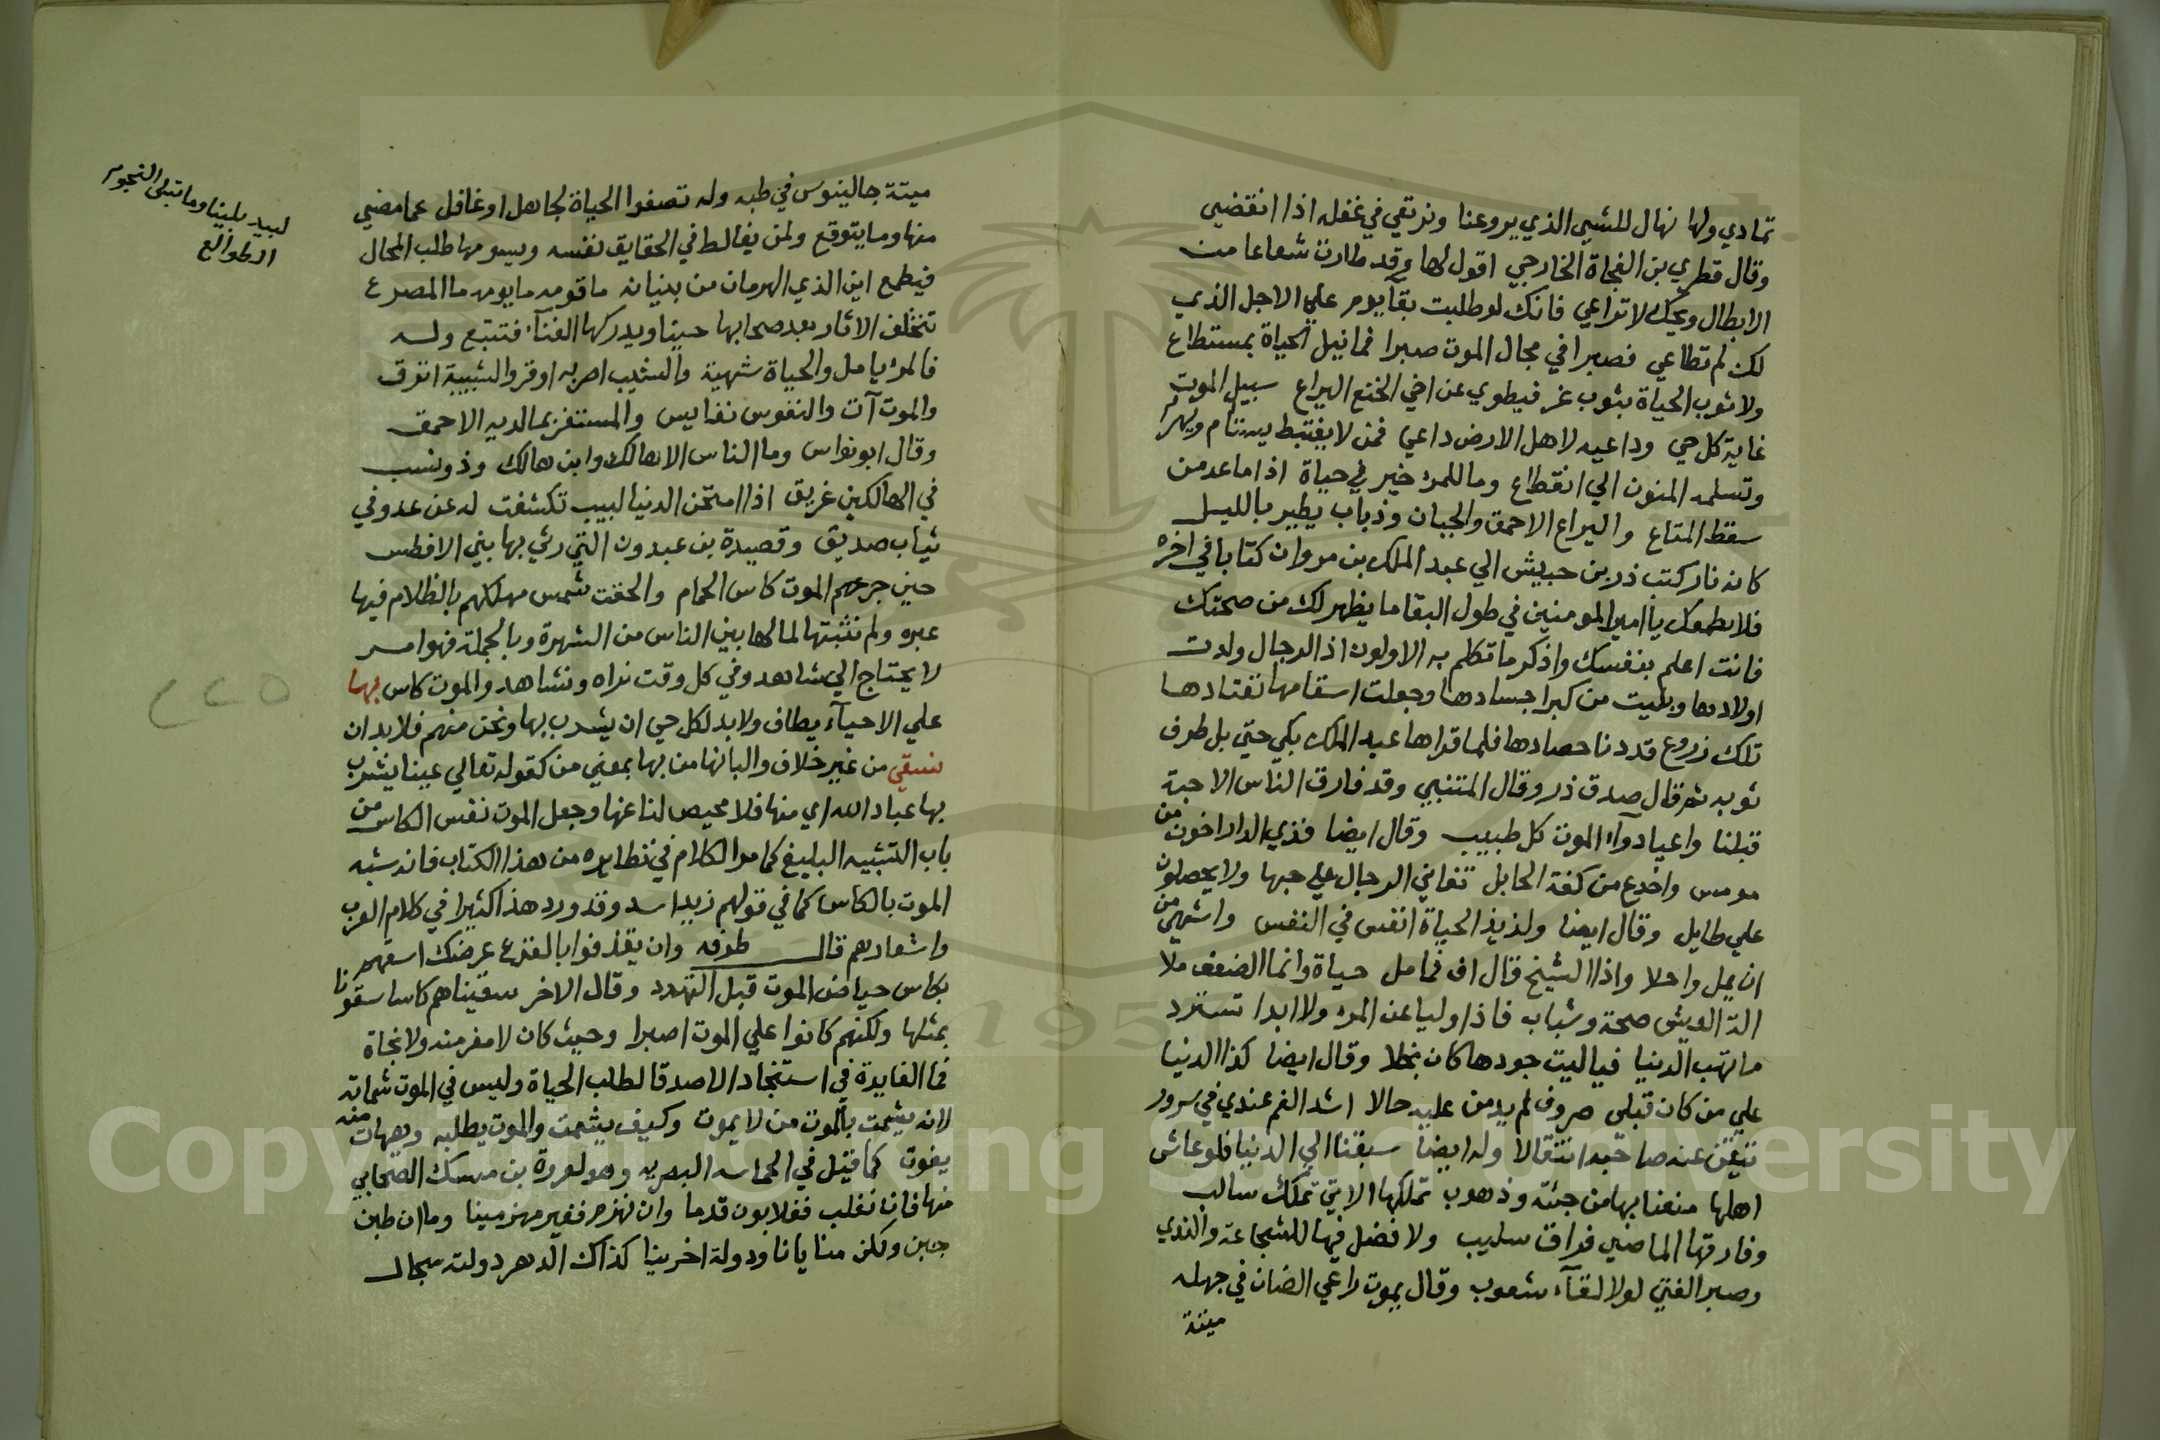 تمادي ولها نهال للشي الذي يروعنا ونرتقي في غفله اذا انقضي
وقال قطري بن الفجاة الخارجي اقول لها وقد طارت شعاعا من
الابطال ويحك لا تراعي فانك لو طلبت بقآيوم علي الاجل الذي
لك لم تطاعي فصبرا في مجال الموت صبرا فما نيل الحياة بمستطاع
ولا ثوب الحياة بثوب عز فيطوي عن اخي الخنع اليراع سبيل الموت
غاية كل حي وداعيه لاهل الارض داعي فمن لا يغتبط يسئام ويهرم
وتسلمه المنون الي انقطاع وما للمرء خير في حياة اذا ما عد من
سقط المتاع واليراع الاحمق والجبان وذباب يطير بالليل
كانه نار كتب ذر بن حبيش الي عبد الملك بن مروان كتابا في اخره
فلا يطمعك يا امير المومنين في طول البقا ما يظهر لك من صحتك
فانت اعلم بنفسك واذكر ما تكلم به الاولون اذا الرجال ولدت
اولادها وبليت من كبر اجسادها وجعلت اسقامها تعتادها
تلك زروع قد دنا حصادها فلما قراها عبد الملك بكي حتي بل طرف
ثوبه ثم قال صدق ذر وقال المتنبي وقد فارق الناس الاحبة
قبلنا واعيا دوآء الموت كل طبيب وقال ايضا فذي الدار اخون من
مومس واخدع من كفة الحابل تفاني الرجال علي حبها ولا يحصلون
علي طايل وقال ايضا ولذيذ الحياة انفس في النفس واشهي من
ان يمل واحلا واذا الشيخ قال اف فما مل حياة وانما الضعف ملا
الة العيش صحة وشباب فاذا وليا عن المرء ولا ابدا تسترد
ما تهب الدنيا فياليت جودها كان بخلا وقال ايضا كذا الدنيا
علي من كان قبلي صروف لم يدمن عليه حالا اشد الغم عندي في سرور
تيقن عنه صاحبه انتقالا وله ايضا سبقنا الي الدنيا فلو عاش
اهلها منعنا بها من جئة وذهوب تملكها الاتي تملك سالب
وفارقها الماضي فراق سليب ولا فضل فيها للشجاعة والندي
وصبر الفتي لولا لقآء شعوب وقال يموت راعي الضان في جهله
ميتة
ميتة جالينوس في طبه وله تصفوا الحياة لجاهل او غافل عما مضي
منها وما يتوقع ولمن يغالط في الحقايق نفسه ويسومها طلب المحال
فيطمع اين الذي الهرمان من بنيانه ما قومه ما يومه ما المصرع
تتخلف الاثار بعد صحابها حينا ويدركها الفنآء فتتبع وله
فالمرء يامل والحياة شهية والشيب اوقر والشبيبة انزق
والموت آت والنفوس نفايس والمستغر بما لديه الاحمق
وقال ابو نواس وما الناس الا هالك وابن هالك وذو نسب
في الهالكين غريق اذا امتحن الدنيا لبيب تكشفت له عن عدو في
ثياب صديق وقصيدة بن عبدون التي رثي بها بني الافطس
حين جرعهم الموت كاس الحمام والحقت شمس مهلكهم بالظلام فيها
عبره ولم نثبتها لما لها بين الناس من الشهرة وبالجملة فهو امر
لا يحتاج الي شاهد وفي كل وقت نراه ونشاهد والموت كاس بها
علي الاحيآء يطاف ولا بد لكل حي ان يشرب بها ونحن منهم فلا بد ان
نسقي من غير خلاف والبا نهامن بها بمعني من كقوله تعالي عينا يشرب
بها عباد الله اي منها فلا محيص لنا عنها وجعل الموت نفس الكاس من
باب التشبيه البليغ كما مر الكلام في نظايره من هذا الكتاب فانه شبه
الموت بالكاس كما في قولهم زيد اسد وقد ورد هذا كثيرا في كلام العرب
واشعارهم قال طرفه وان يقذفوا بالقذع عرضك اسقهم
بكاس حياض الموت قبل التهدد وقال الاخر سقيناهم كاسا سقونا
بمثلها ولكنهم كانوا علي الموت اصبرا وحيث كان لا مفر منه ولا نجاة
فما الفايدة في استنجاد الاصدقا لطلب الحياة وليس في الموت شماته
لانه يشمت بالموت من لا يموت وكيف يشمت والموت يطلبه وهيهات منه
يفوت كما قيل في الحماسه البصريه وهو لعروة بن مسيك الصحابي
منها فان نغلب فغلابون قدما وان نهزم فغير مهزمينا وما ان طبنا
جبن ولكن منايانا ودولة اخرينا كذاك الدهر دولته سجال
لبيد بلينا وما تبلى النجوم
الطوالع